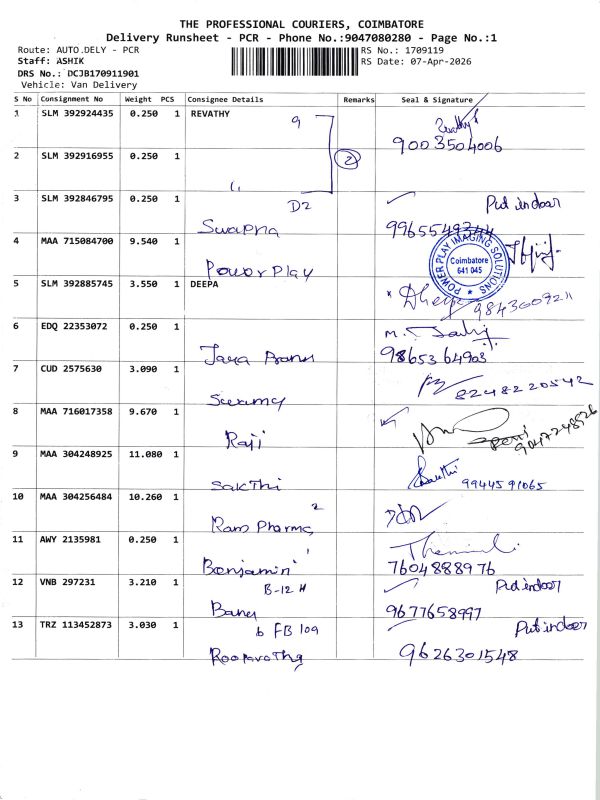 THE PROFESSIONAL COURIERS, COIMBATORE
Delivery Runsheet - PCR - Phone No.:9047080280 - Page No.:1
Route: AUTO.DELY - PCR
RS No.: 1709119
Staff: ASHIK
RS Date: 07-Apr-2026
DRS No.: DCJB170911901
Vehicle: Van Delivery
S No Consignment No Weight PCS Consignee Details Remarks Seal & Signature
1 SLM 392924435 0.250 1 REVATHY
9
9003504006
2 SLM 392916955 0.250 1
2
3 SLM 392846795 0.250 1
D2
Put indoor
Swapna
4 MAA 715084700 9.540 1
PowerPlay
POWER PLAY IMAGING SOLUTIONS
Coimbatore
641 045
5 SLM 392885745 3.550 1 DEEPA
9843009211
6 EDQ 22353072 0.250 1
9865364903
7 CUD 2575630 3.090 1
8248220542
8 MAA 716017358 9.670 1
Raji
9047248926
9 MAA 304248925 11.080 1
Sakthi
9944591065
10 MAA 304256484 10.260 1
2
Ram Pharma
11 AWY 2135981 0.250 1
Benjamin
7604888976
12 VNB 297231 3.210 1
B-12 H
Put indoor
9677658997
13 TRZ 113452873 3.030 1
6 FB 109
Put indoor
9626301548